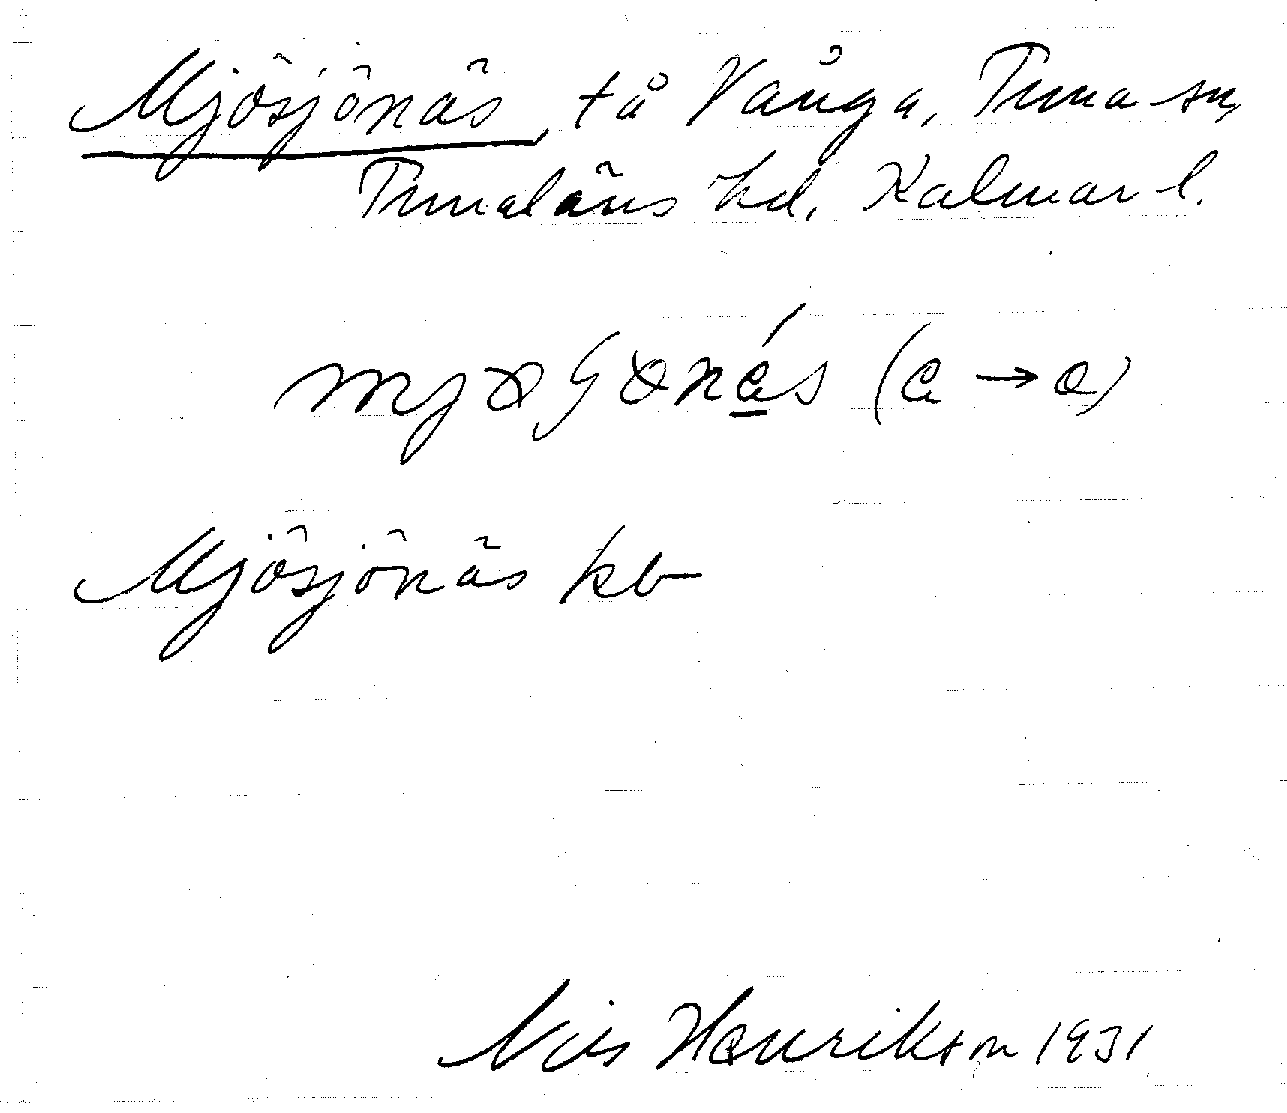 Mjösjönäs, tå Vånga, Tuna sn,
Tunaläns hd, Kalmar l.
(a → a)
Mjösjönäs kb
Nils Henrikson 1931